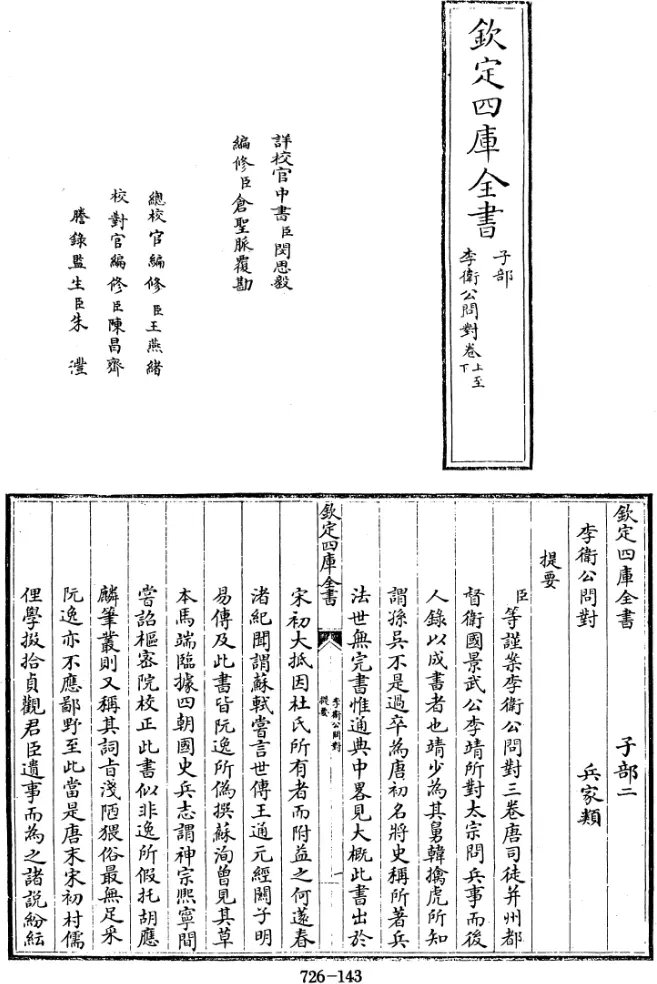 欽定四庫全書
子部
李衛公問對卷上至下
詳校官中書臣閔思毅
編修臣倉聖脈覆勘
總校官編修臣王燕緒
校對官編修臣陳昌齊
謄錄監生臣朱灃
欽定四庫全書 子部二
李衛公問對 兵家類
提要
臣等謹案李衛公問對三卷唐司徒并州都
督衛國景武公李靖所對太宗問兵事而後
人錄以成書者也靖少為其舅韓擒虎所知
謂孫吳不是過卒為唐初名將史稱所著兵
法世無完書惟通典中畧見大概此書出於
欽定四庫全書
李衛公問對
提要
一
宋初大抵因杜氏所有者而附益之何薳春
渚紀聞謂蘇軾嘗言世傳王通元經關子明
易傳及此書皆阮逸所偽撰蘇洵曾見其草
本馬端臨據四朝國史兵志謂神宗熙寧間
嘗詔樞密院校正此書似非逸所假托胡應
麟筆叢則又稱其詞旨淺陋猥俗最無足采
阮逸亦不應鄙野至此當是唐末宋初村儒
俚學掇拾貞觀君臣遺事而為之諸說紛紜
726-143